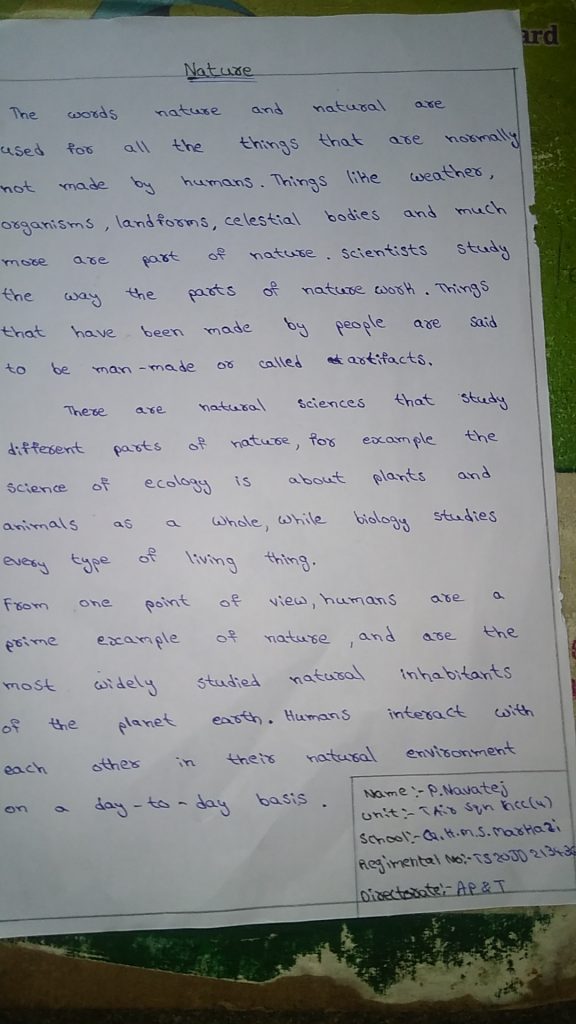 ard
Nature
The words nature and natural are
used for all the things that are normally
not made by humans. Things like weather,
organisms, landforms, celestial bodies and much
more are part of nature. scientists study
the way the parts of nature work. Things
that have been made by people are said
to be man-made or called artifacts.
There are natural sciences that study
different parts of nature, for example the
science of ecology is about plants and
animals as a whole, while biology studies
every type of living thing.
From one point of view, humans are a
prime example of nature, and are the
most widely studied natural inhabitants
of the planet earth. Humans interact with
each other in their natural environment
on a day-to-day basis.
Name :- P. Navatej
Unit :- Air Sqn NCC(U)
School:- G.H.M.S. Markazi
Regimental No:- TS20JD213436
Directorate:- AP & T